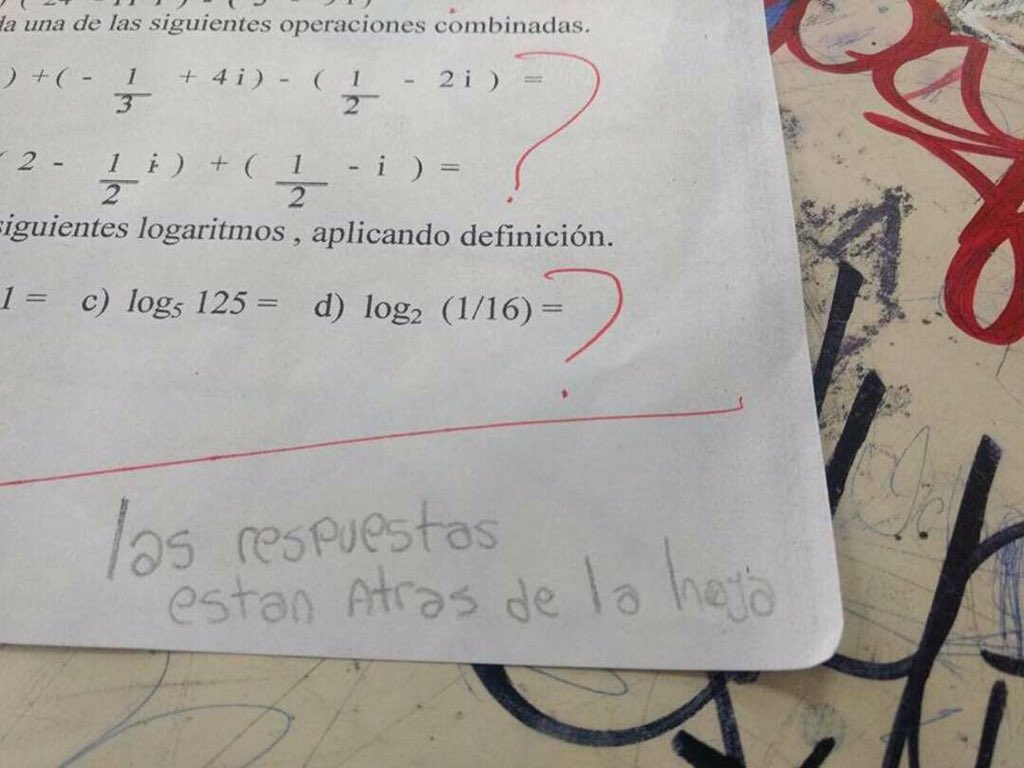 una de las siguientes operaciones combinadas.
) + ( - 1/3 + 4 i ) - ( 1/2 - 2 i ) =
2 - 1/2 i ) + ( 1/2 - i ) =
siguientes logaritmos , aplicando definición.
1 = c) log₅ 125 = d) log₂ (1/16) =
las respuestas
estan Atras de la hoja